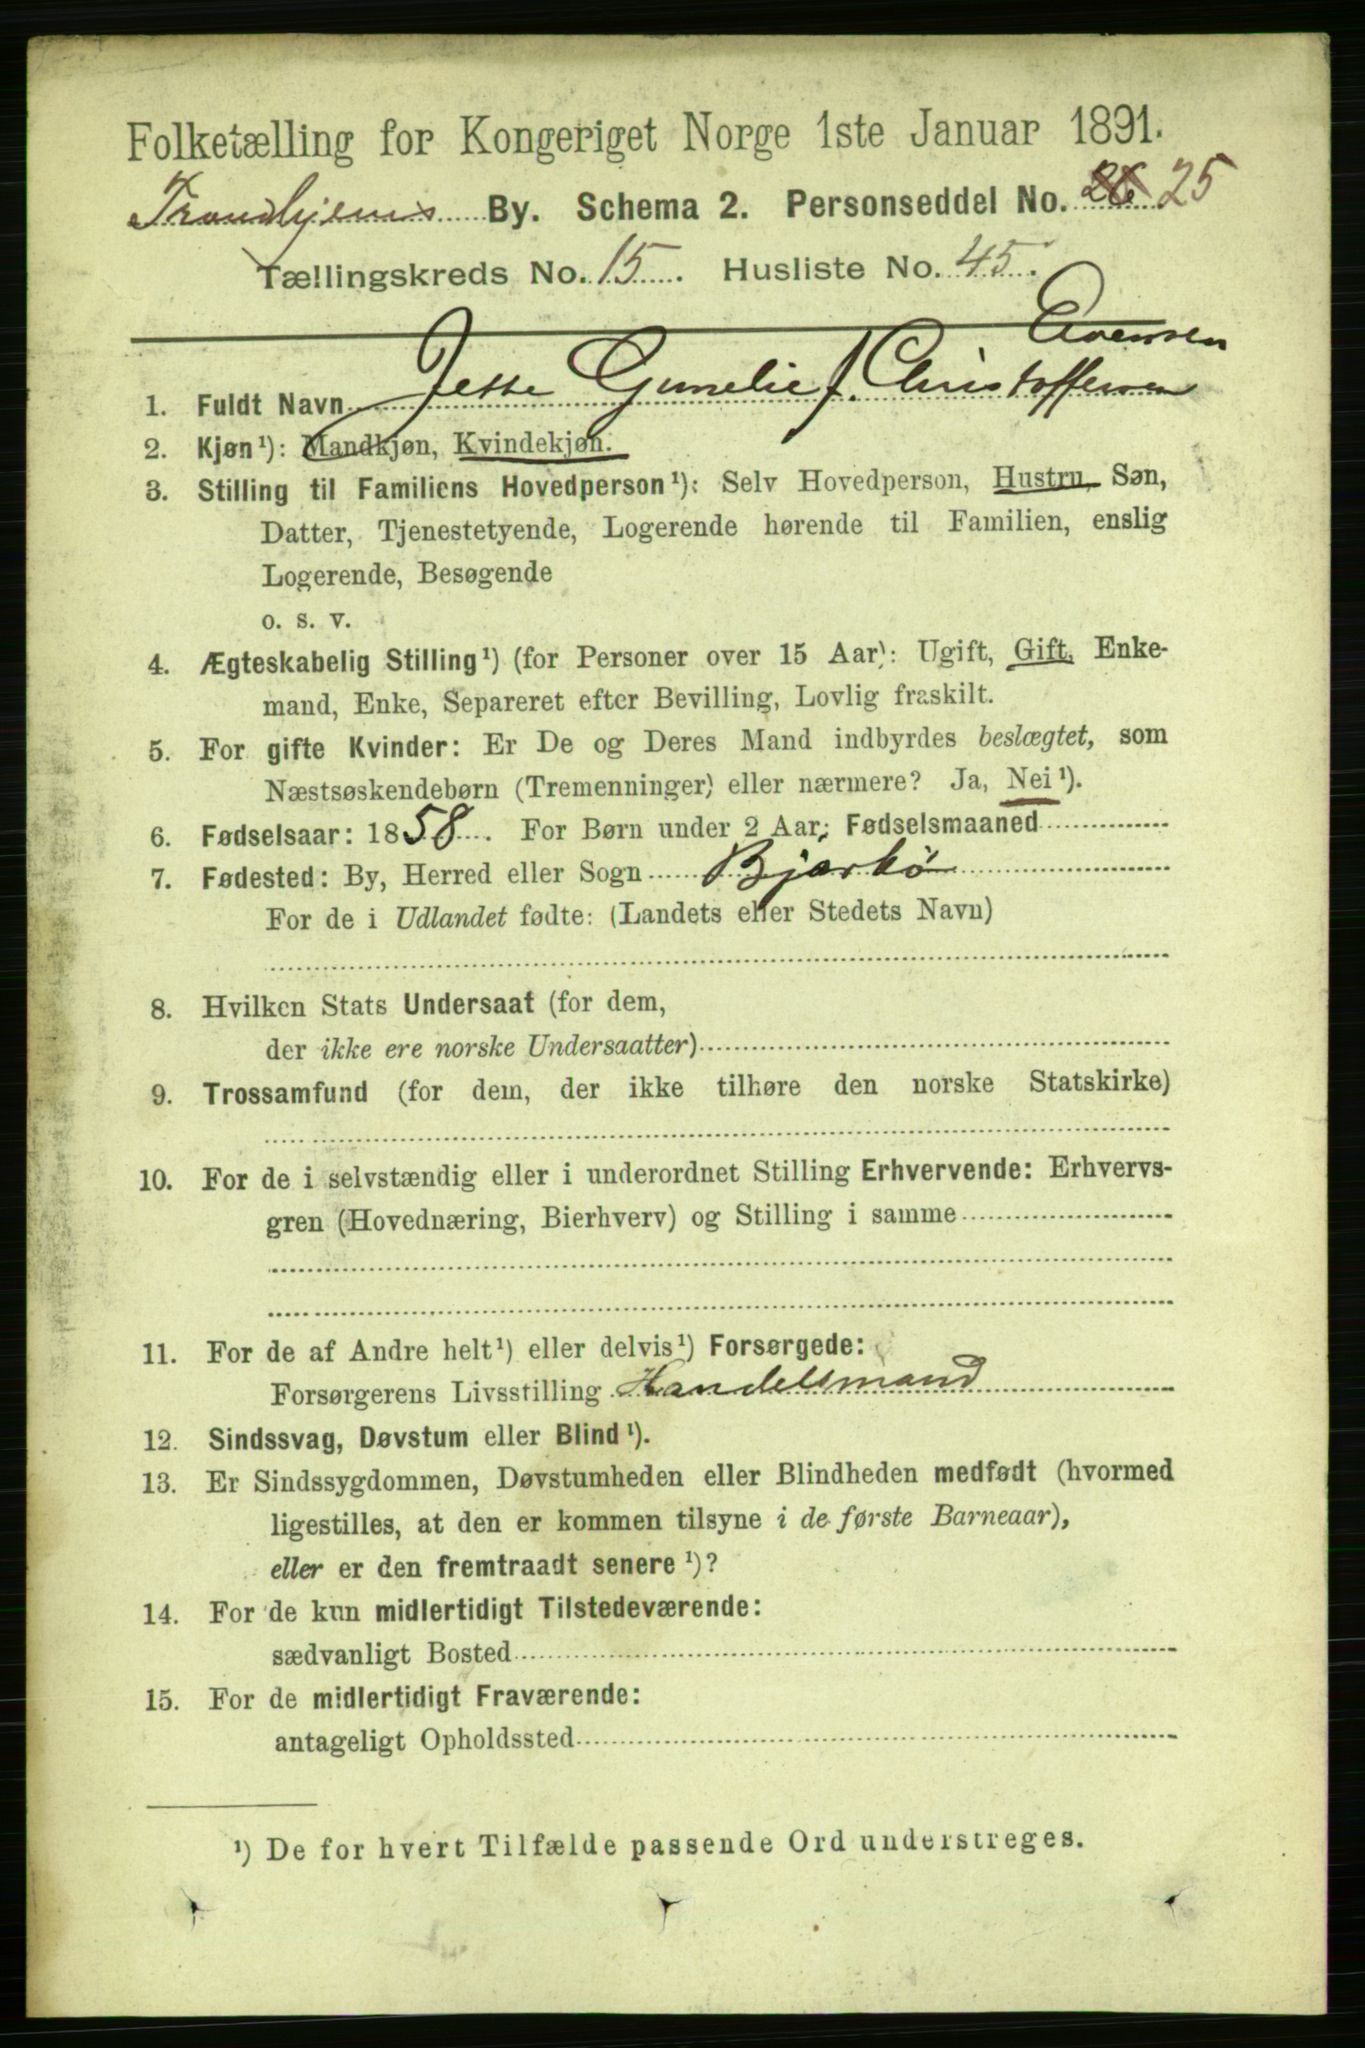 Folketælling for Kongeriget Norge 1ste Januar 1891.
Trondhjems By. Schema 2. Personseddel No. 26 25
Tællingskreds No. 15. Husliste No. 45.
Evensen
1. Fuldt Navn Jette Gunelie f. Christoffersen
2. Kjøn¹): Mandkjøn, Kvindekjøn.
3. Stilling til Familiens Hovedperson¹): Selv Hovedperson, Hustru, Søn,
Datter, Tjenestetyende, Logerende hørende til Familien, enslig
Logerende, Besøgende
o. s. v.
4. Ægteskabelig Stilling¹) (for Personer over 15 Aar): Ugift, Gift, Enke-
mand, Enke, Separeret efter Bevilling, Lovlig fraskilt.
5. For gifte Kvinder: Er De og Deres Mand indbyrdes beslægtet, som
Næstsøskendebørn (Tremenninger) eller nærmere? Ja, Nei¹).
6. Fødselsaar: 1858. For Børn under 2 Aar: Fødselsmaaned
7. Fødested: By, Herred eller Sogn Bjarkö
For de i Udlandet fødte: (Landets eller Stedets Navn)
8. Hvilken Stats Undersaat (for dem,
der ikke ere norske Undersaatter)
9. Trossamfund (for dem, der ikke tilhøre den norske Statskirke)
10. For de i selvstændig eller i underordnet Stilling Erhvervende: Erhvervs-
gren (Hovednæring, Bierhverv) og Stilling i samme
11. For de af Andre helt¹) eller delvis¹) Forsørgede:
Forsørgerens Livsstilling Handelsmand
12. Sindssvag, Døvstum eller Blind¹).
13. Er Sindssygdommen, Døvstumheden eller Blindheden medfødt (hvormed
ligestilles, at den er kommen tilsyne i de første Barneaar),
eller er den fremtraadt senere¹)?
14. For de kun midlertidigt Tilstedeværende:
sædvanligt Bosted
15. For de midlertidigt Fraværende:
antageligt Opholdssted
¹) De for hvert Tilfælde passende Ord understreges.